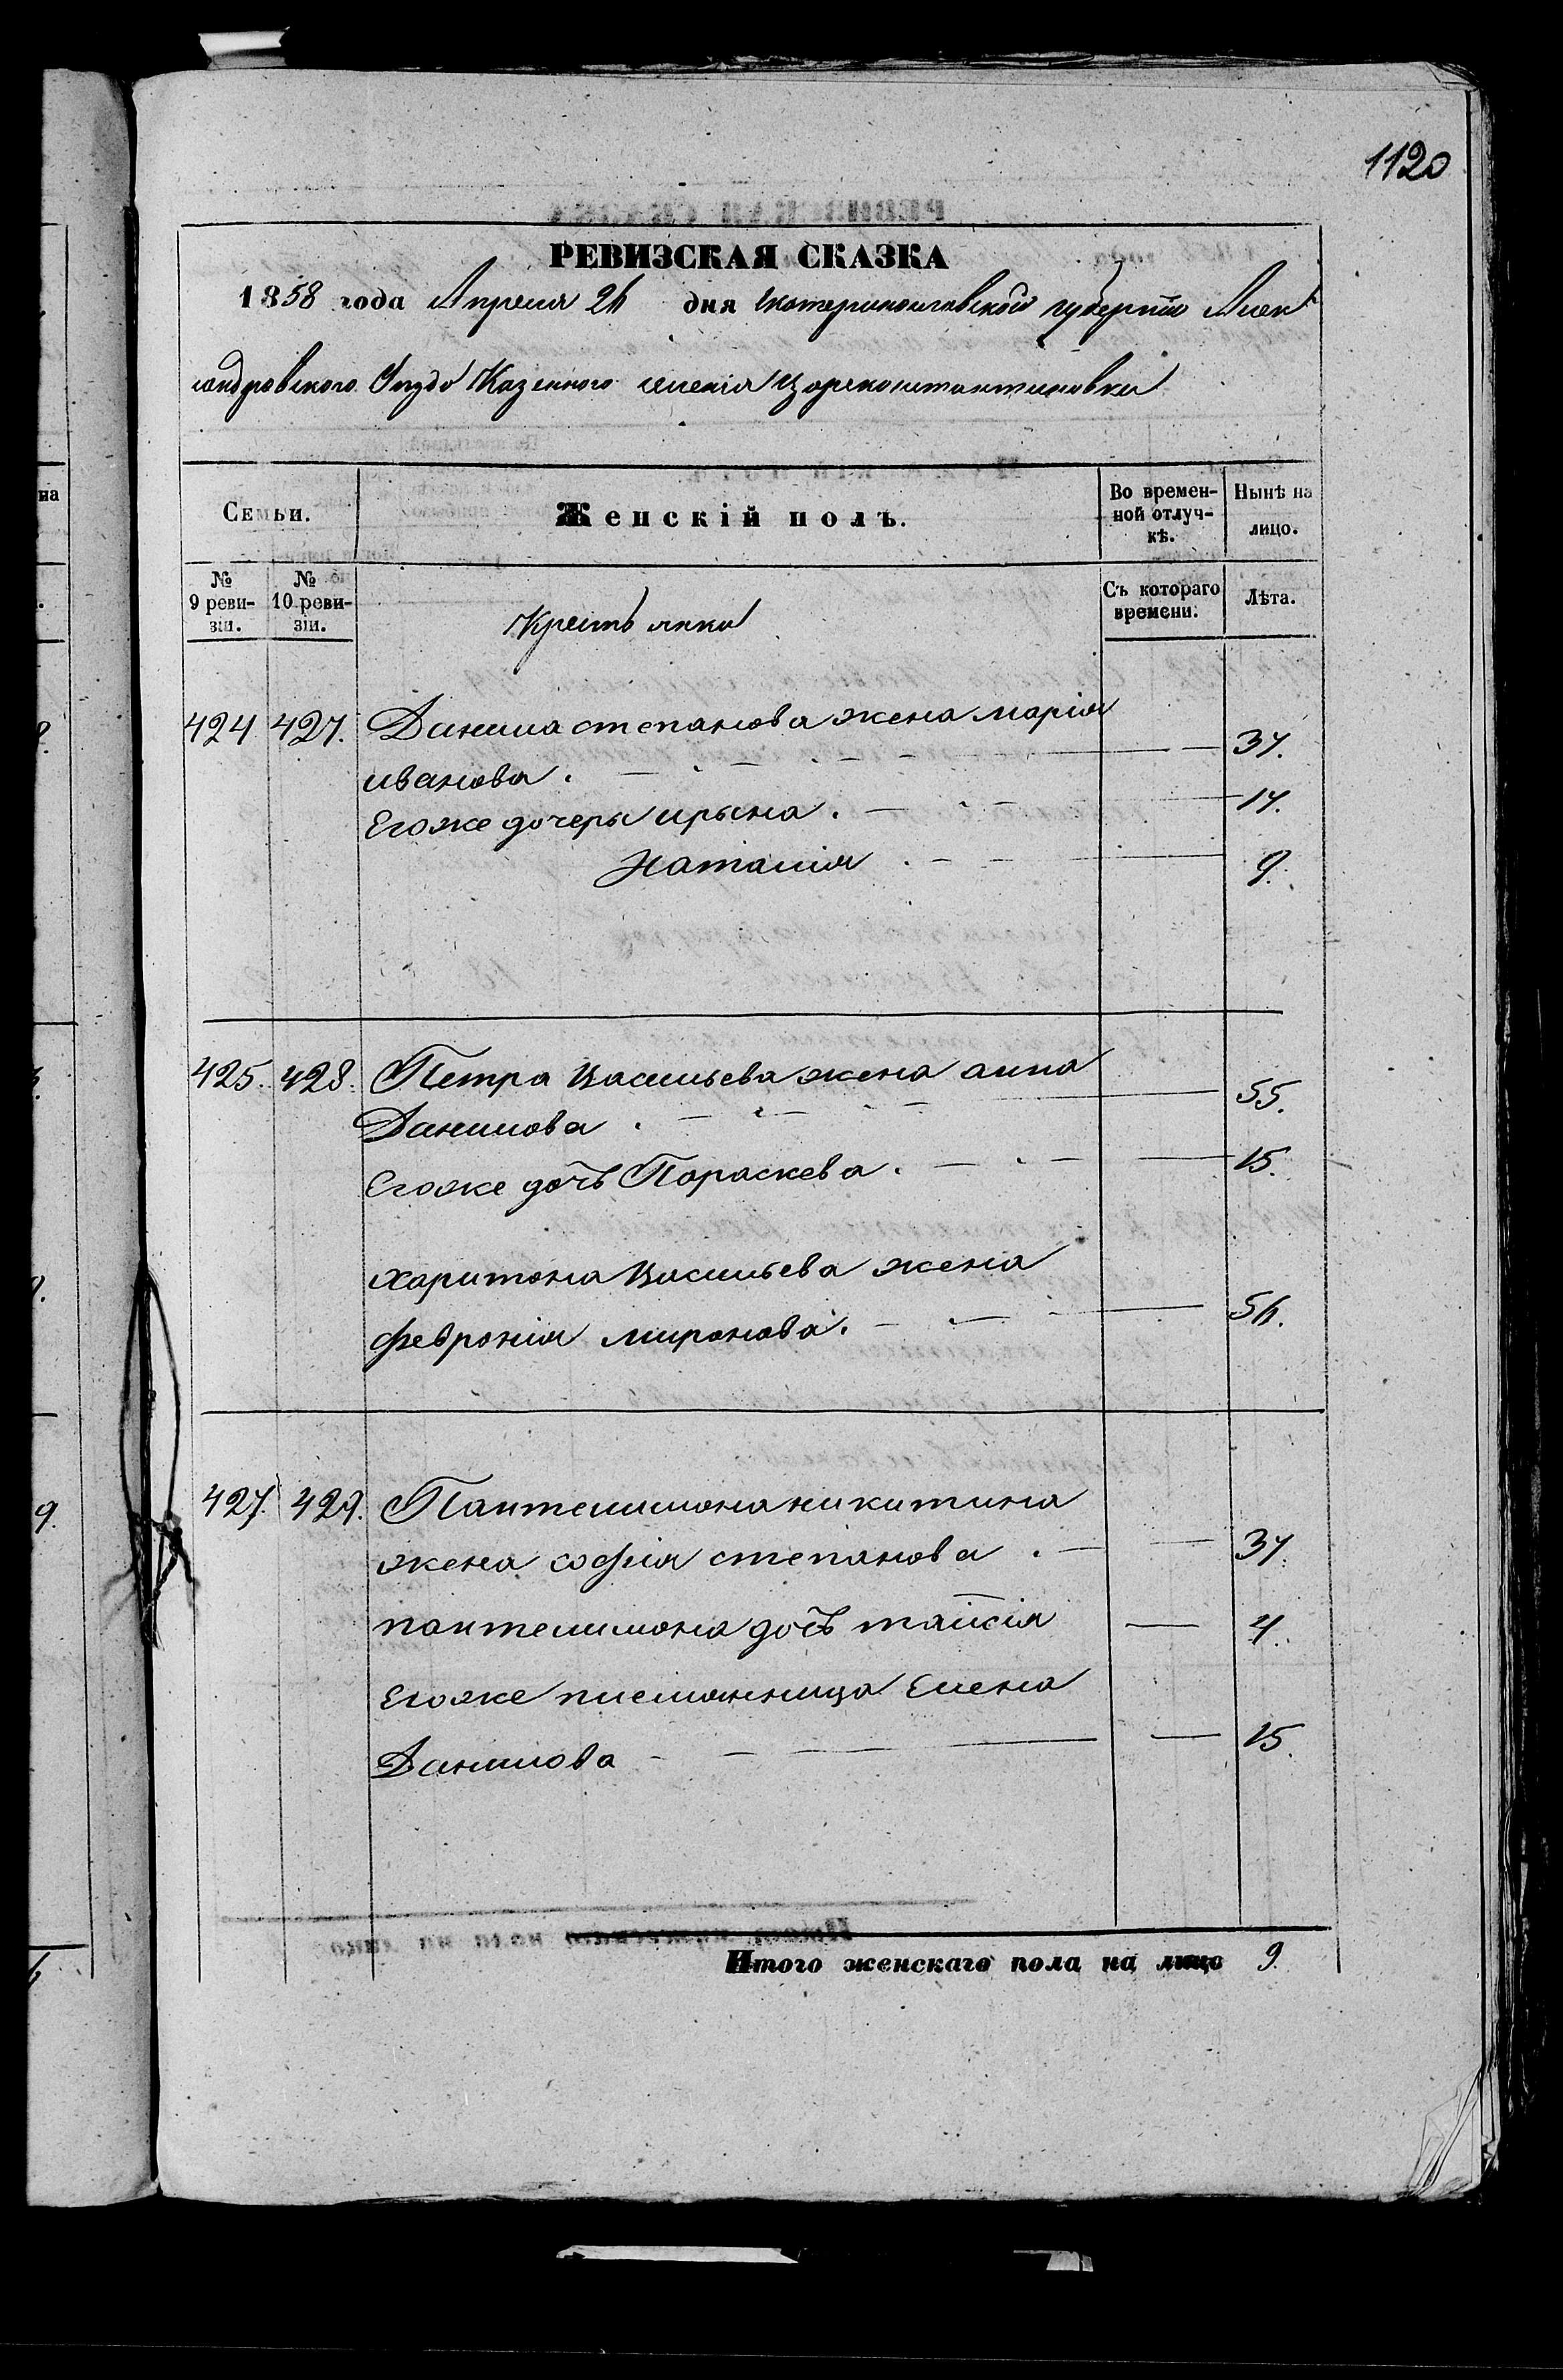 1120
РЕВИЗСКАЯ СКАЗКА
1858 года Апреля 26 дня Екатеринославской губернии Алек
сандровского Уезда Казенного селения Цареконстантиновки
Семьи.
Женскій полъ.
Во времен-
ной отлуч-
кѣ.
Нынѣ на
лицо.
№
9 реви-
зіи.
№
10 реви-
зіи.
Крестьянки
Съ котораго
времени.
Лѣта.
424. 427. Данила степанова жена марія
иванова. 37.
Егоже дочеры ирына. 14.
Наталія 9.
425. 428. Петра Васильева жена анна
Данилова. 55.
Егоже дочь Параскева. 15.
харитона Васильева жена
феврония миронова. 56.
427. 429. Пантелимона никитина
жена софия степанова. 37.
пантелимона дочь таисія 4.
Егоже племянница Елена
Данилова 15.
Итого женскаго пола на лицо 9.